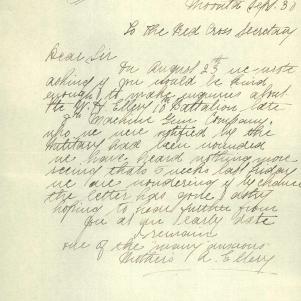 Moonta Sept. 30
To The Red Cross Secretary
Dear Sir
On August 23rd we wrote
asking if you would be kind
enough to make inquiries about
Pte W. H. Ellery 10th Battalion late
Machine Gun Company,
who we were notified by the
military had been wounded
we have heard nothing more
seeing thats 5 weeks last Friday
we are wondering if by chance
the letter has gone astray
hoping to hear further from
you at an early date
I remain
one of the many anxious
Mothers A. Ellery